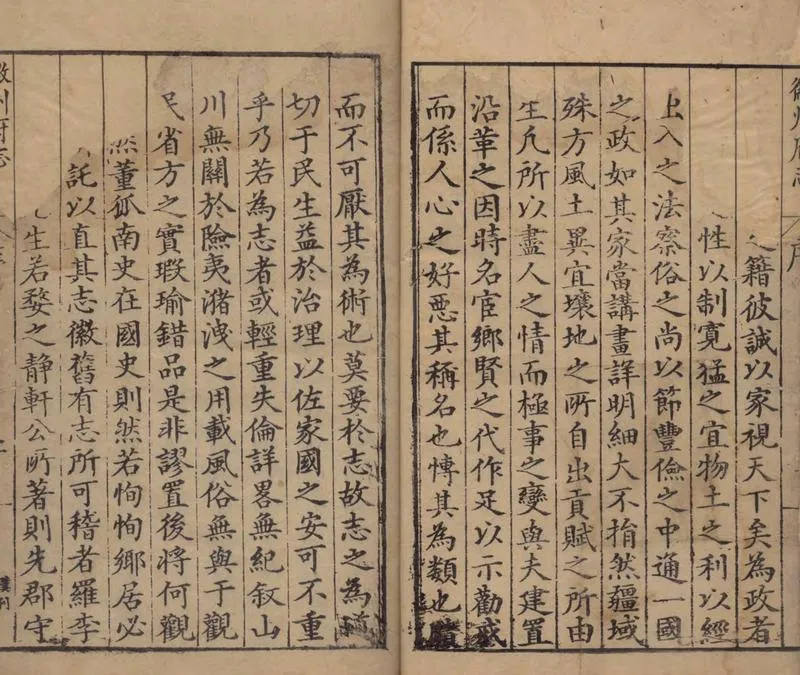 徽州府志
序
籍彼誠以家視天下矣為政者
性以制寬猛之宜物土之利以經
入之法察俗之尚以節豐儉之中通一國
之政如其家當講畫詳明細大不捐然疆域
殊方風土異宜壤地之所自出貢賦之所由
生凡所以盡人之情而極事之變與夫建置
沿革之因時名宦鄉賢之代作足以示勸
而係人心之好惡其稱名也慱其為類也
而不可厭其為術也莫要於志故志之為
切于民生益於治理以佐家國之安可不重
乎乃若為志者或輕重失倫詳畧無紀叙山
川無關於險夷潴洩之用載風俗無與于觀
民省方之實瑕瑜錯品是非謬置後將何觀
然董狐南史在國史則然若恂恂鄉居必
託以直其志徽舊有志所可稽者羅李
生若婺之靜軒公所著則先郡守
徽州府志